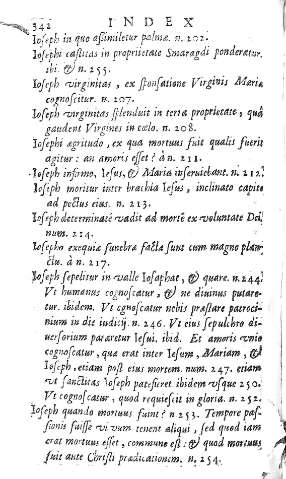 342 INDEX
Ioseph in quo assimiletur palmæ. n. 202.
Iosephi castitas in proprietate Smaragdi ponderatur.
ibi. & n. 255.
Ioseph virginitas, ex sponsatione Virginis Mariæ
cognoscitur. n. 207.
Ioseph virginitas splenduit in terræ proprietate, quâ
gaudent Virgines in cœlo. n. 208.
Iosephi ægritudo, ex qua mortuus fuit qualis fuerit
agitur: an amoris esset? à n. 211.
Ioseph infirmo, Iesus, & Maria inseruiebant. n. 212.
Ioseph moritur inter brachia Iesus, inclinato capite
ad pectus eius. n. 213.
Ioseph determinatè vadit ad mortē ex voluntate Dei,
num. 214.
Iosepho exequiæ funebræ factæ sunt cum magno planctu.
à n. 217.
Ioseph sepelitur in valle Iosaphat, & quare. n. 244.
Vt humanus cognoscatur, & ne diuinus putaretur.
ibidem. Vt cognoscatur nobis præstare patrocinium
in die iudicij. n. 246. Vt eius sepulchro diuersorium
pararetur Iesui. ibid. Et amoris vnio
cognoscatur, quæ erat inter Iesum, Mariam, &
Ioseph, etiam post eius mortem. num. 247. etiam
vt sanctitas Ioseph pateseret ibidem vsque 250.
Vt cognoscatur, quod requiescit in gloria. n. 252.
Ioseph quando mortuus fuint? n 253. Tempore passionis
fuisse vi vum tenent aliqui, sed quod iam
erat mortuus esset, commune est: & quod mortuus
fuit ante Christi prædicationem. n. 254.